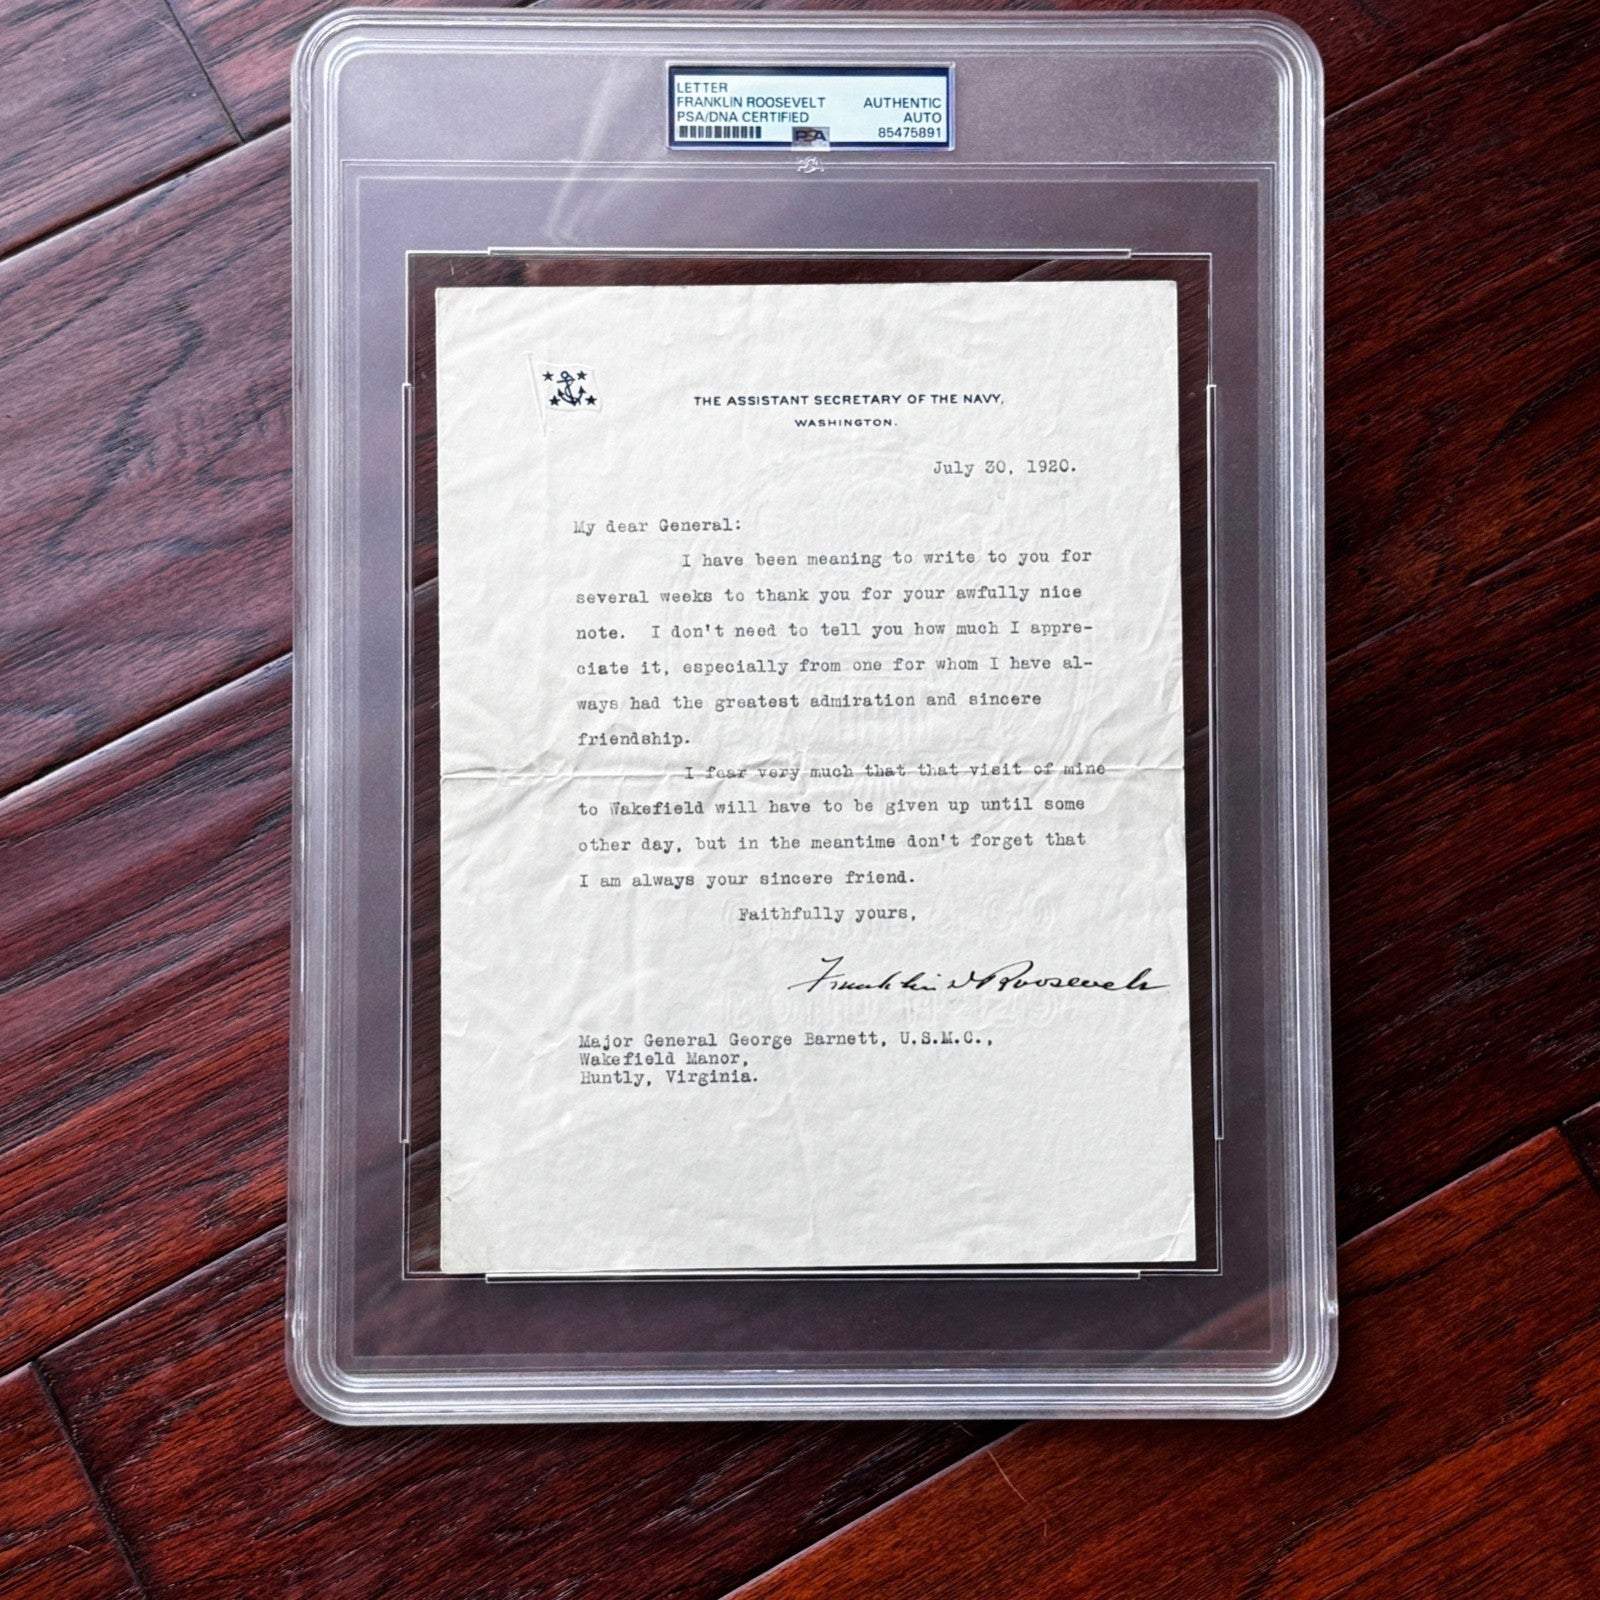 LETTER
FRANKLIN ROOSEVELT AUTHENTIC
PSA/DNA CERTIFIED AUTO
PSA 85475891
THE ASSISTANT SECRETARY OF THE NAVY,
WASHINGTON.
July 30, 1920.
My dear General:
I have been meaning to write to you for
several weeks to thank you for your awfully nice
note. I don't need to tell you how much I appre-
ciate it, especially from one for whom I have al-
ways had the greatest admiration and sincere
friendship.
I fear very much that that visit of mine
to Wakefield will have to be given up until some
other day, but in the meantime don't forget that
I am always your sincere friend.
Faithfully yours,
Franklin D Roosevelt
Major General George Barnett, U.S.M.C.,
Wakefield Manor,
Huntly, Virginia.